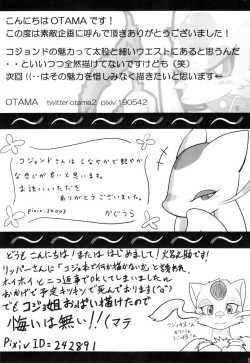 こんにちは OTAMA です！
この度は素敵企画に呼んで頂きありがとうございました！
コジョンドの魅力って太股と細いウエストにあると思うんだ
・・といいつつ全然描けてないですけども（笑）
次回（（・・はその魅力を惜しみなく描きたいと思いますー
OTAMA　twitter:otama2　pixiv:190542
コジョンドさんは しなやかで艶やか
な感じが良いと思います。
お誘いいただき
ありがとうございました。
かじうら
どうも こんにちは！または はじめまして！
リッパーさんに「コジョ本で何か描かないか」と言われ、
ホイホイと二つ返事でOKしてしまいましたの
おかげで予定ギリギリで死にそうです(^q^)
でも コジョ姐おっぱい描けたので
悔いは無い!!(マテ
Pixiv ID=242891